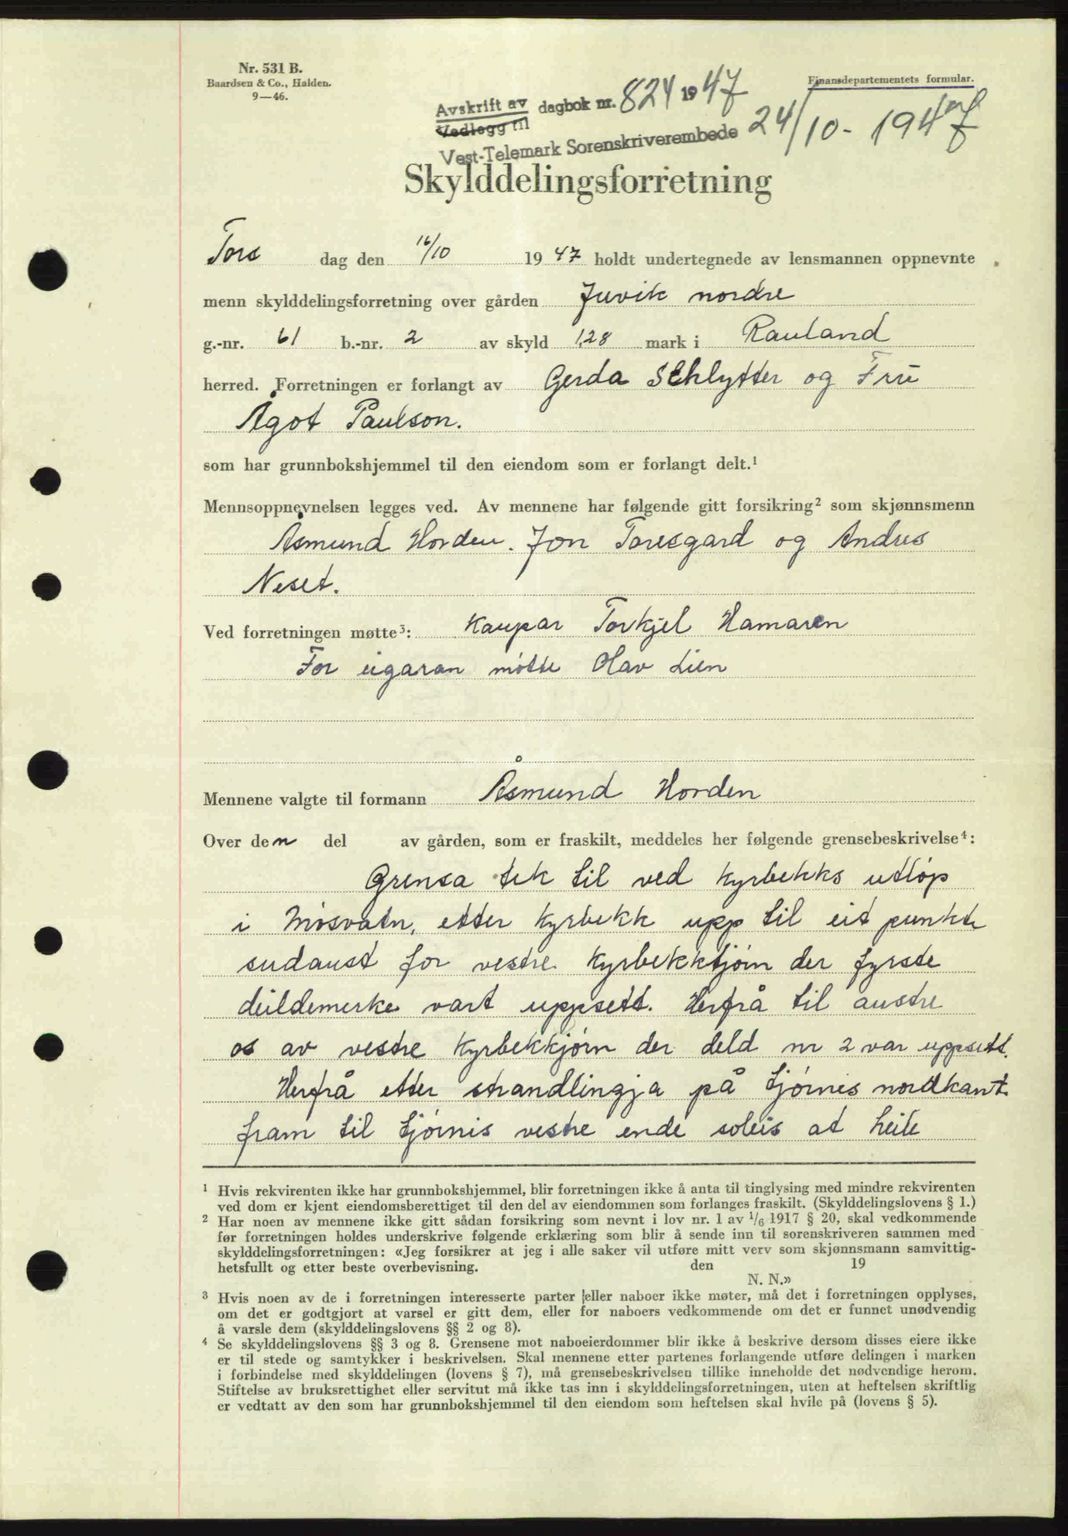 Nr. 531 B.
Baardsen & Co., Halden.
9—46.
Finansdepartementets formular.
Avskrift av
Vedlegg til
dagbok nr. 824 1947
Vest-Telemark Sorenskriverembede 24/10 - 1947
Skylddelingsforretning
Tors dag den 16/10 1947 holdt undertegnede av lensmannen oppnevnte
menn skylddelingsforretning over gården Juvik nordre
g.-nr. 61 b.-nr. 2 av skyld 1,28 mark i Rauland
herred. Forretningen er forlangt av Gerda Schlytter og Fru
Ågot Paulson.
som har grunnbokshjemmel til den eiendom som er forlangt delt.¹
Mennsoppnevnelsen legges ved. Av mennene har følgende gitt forsikring² som skjønnsmenn
Åsmund Horden. Jon Toresgard og Andres
Neset.
Ved forretningen møtte³: Kaupar Torkjel Hamaren
For eigaran møtte Olav Lien
Mennene valgte til formann Åsmund Horden
Over den del av gården, som er fraskilt, meddeles her følgende grensebeskrivelse⁴:
Grensa tek til ved Kyrbekks utløp
i Møsvatn, etter Kyrbekk upp til eit punkt
sudaust for vestre Kyrbekktjørn der fyrste
deildemerke vart uppsett. Herfrå til austre
os av vestre Kyrbekkjørn der deld nr 2 var uppsett.
Herfrå etter strandlingja på tjørnis nordkant
fram til tjørnis vestre ende soleis at heile
¹ Hvis rekvirenten ikke har grunnbokshjemmel, blir forretningen ikke å anta til tinglysing med mindre rekvirenten
ved dom er kjent eiendomsberettiget til den del av eiendommen som forlanges fraskilt. (Skylddelingslovens § 1.)
² Har noen av mennene ikke gitt sådan forsikring som nevnt i lov nr. 1 av 1/6 1917 § 20, skal vedkommende
før forretningen holdes underskrive følgende erklæring som blir å sende inn til sorenskriveren sammen med
skylddelingsforretningen: «Jeg forsikrer at jeg i alle saker vil utføre mitt verv som skjønnsmann samvittig-
hetsfullt og etter beste overbevisning. den 19
N. N.»
³ Hvis noen av de i forretningen interesserte parter eller naboer ikke møter, må det i forretningen opplyses,
om det er godtgjort at varsel er gitt dem, eller for naboers vedkommende om det er funnet unødvendig
å varsle dem (skylddelingslovens §§ 2 og 8).
⁴ Se skylddelingslovens §§ 3 og 8. Grensene mot naboeierdommer blir ikke å beskrive dersom disses eiere ikke
er til stede og samtykker i beskrivelsen. Skal mennene etter partenes forlangende utføre delingen i marken
i forbindelse med skylddelingen (lovens § 7), må grensebeskrivelsen tillike inneholde det nødvendige herom.
Stiftelse av bruksrettighet eller servitut må ikke tas inn i skylddelingsforretningen, uten at heftelsen skriftlig
er vedtatt av den som har grunnbokshjemmel til den eiendom som heftelsen skal hvile på (lovens § 5).